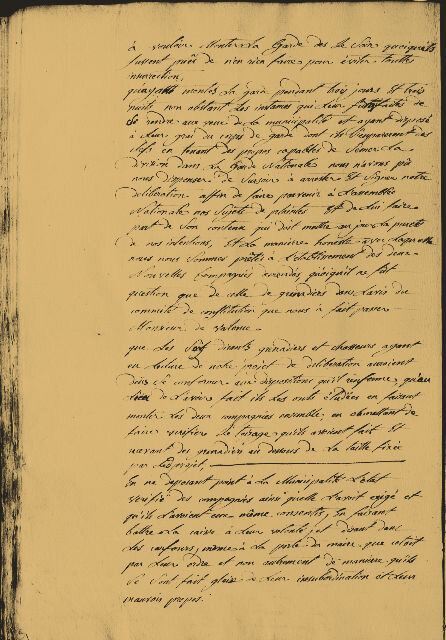 à vouloir monter la garde dès le soir quoiqu'ils
fussent priés de n'en rien faire pour éviter toutte
insurection,
quayant montés la garde pendant trois jours Et trois
nuits non obstant les instances qui leur faites de
se rendre aux yeux de la municipalité et ayant disposé
à leur gré du corps de garde dont ils s'emparerent des
clefs en tenant des propos capables de semer la
division dans la Garde Nationale nous n'avons pu
nous dispenser de darreter et signer notre
deliberation affin de faire parvenir à L'assemblée
Nationale nos sujets de plaintes Et de lui faire
part de son contenu qui doit mettre au jour la pureté
de nos intentions, Et la manière honnete avec laquelle
nous nous sommes pretés à L'etablissement des deux
Nouvelles Compagnies quoiquil ne fut
question que de celle de grenadiers dans l'avis du
committé de constitution que nous a fait passer
Monsieur de
que Les soit dirants grenadiers et chasseurs ayant
eu lecture de notre projet de deliberation auroient
deus se conformer aux dispositions qu'il renferme, qu'au
lieu de suivre fait ils les ont eludées en faisant
monter les deux compagnies ensemble, en obmettant de
faire verifier le toisage qu'ils avoient fait Et
recevant des grenadiers au dessous de la taille fixée
par Leprojet,
En ne deposant point à la Municipalité L'etat
verifié des compagnies ainsi qu'elle l'avoit exigé et
qu'ils l'avoient eux même consenti, En faisant
battre la caisse à leur volonté, et disant dans
les carfours, même à la porte du maire que cetoit
par leur ordre et non autrement de manière qu'ils
se sont fait gloire de leur insubordination et leur
mauvais propos.